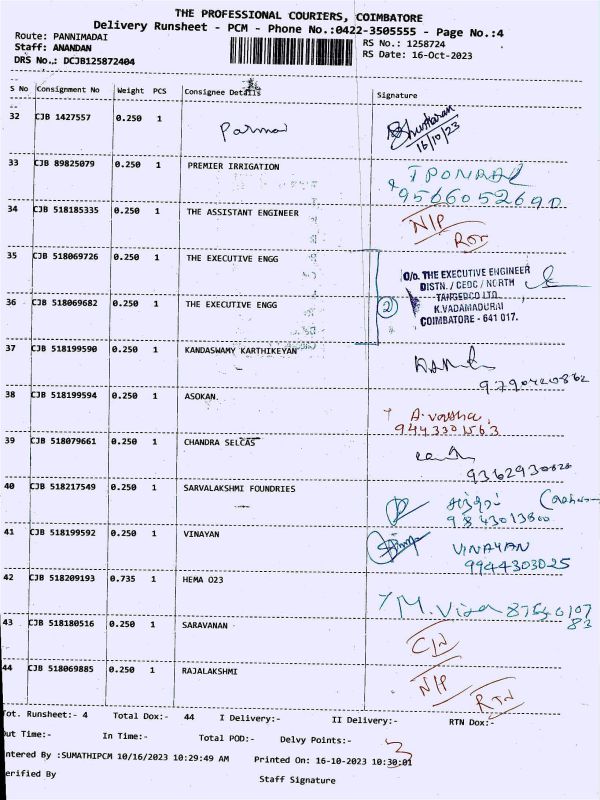 THE PROFESSIONAL COURIERS, COIMBATORE
Delivery Runsheet - PCM - Phone No.:0422-3505555 - Page No.:4
Route: PANNIMADAI
RS No.: 1258724
Staff: ANANDAN
RS Date: 16-Oct-2023
DRS No.: DCJB125872404
S No Consignment No Weight PCS Consignee Details Signature
32 CJB 1427557 0.250 1
16/10/23
33 CJB 89825079 0.250 1 PREMIER IRRIGATION
9566052690
34 CJB 518185335 0.250 1 THE ASSISTANT ENGINEER N/P
35 CJB 518069726 0.250 1 THE EXECUTIVE ENGG
O/o. THE EXECUTIVE ENGINEER
DISTN. / CEDC / NORTH
TANGEDCO LTD.
K.VADAMADURAI
COIMBATORE - 641 017.
2
36 CJB 518069682 0.250 1 THE EXECUTIVE ENGG
37 CJB 518199590 0.250 1 KANDASWAMY KARTHIKEYAN
38 CJB 518199594 0.250 1 ASOKAN.
9443301563
39 CJB 518079661 0.250 1 CHANDRA SELCAS
40 CJB 518217549 0.250 1 SARVALAKSHMI FOUNDRIES
9843013800
41 CJB 518199592 0.250 1 VINAYAN VINAYAN
9944303025
42 CJB 518209193 0.735 1 HEMA 023
43 CJB 518180516 0.250 1 SARAVANAN
44 CJB 518069885 0.250 1 RAJALAKSHMI N/P RTN
Tot. Runsheet:- 4 Total Dox:- 44 I Delivery:- II Delivery:- RTN Dox:-
Out Time:- In Time:- Total POD:- Delvy Points:- 3
ntered By :SUMATHIPCM 10/16/2023 10:29:49 AM Printed On: 16-10-2023 10:30:01
erified By Staff Signature